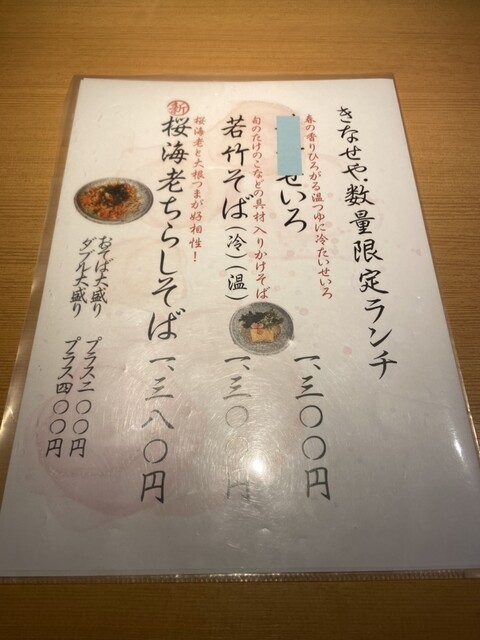 きなせや・数量限定ランチ
春の香りひろがる温つゆに冷たいせいろ
せいろ 一、三〇〇円
旬のたけのこなどの具材入りかけそば
若竹そば(冷)(温) 一、三〇〇円
桜海老と大根つまが好相性!
新 桜海老ちらしそば 一、三八〇円
おそば大盛り プラス二〇〇円
ダブル大盛り プラス四〇〇円